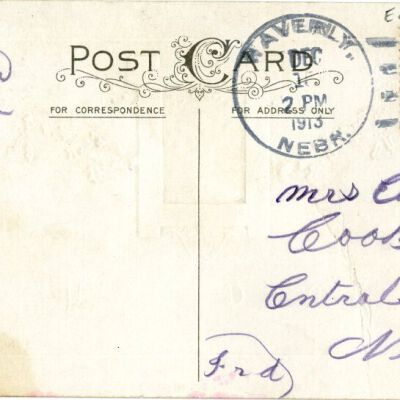 POST CARD
FOR CORRESPONDENCE
FOR ADDRESS ONLY
WAVERLY,
DEC
1
2 PM
1913
NEBR.
Mrs
Cook
Central
N
Frd